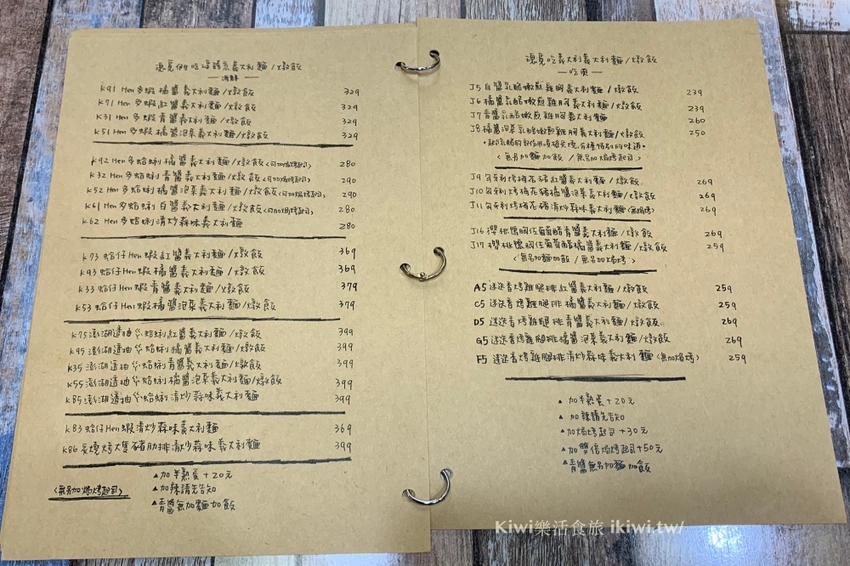 義大利麵/燉飯
— 海鮮 —
K91 Hen多蝦橘醬義大利麵/燉飯 329
K71 Hen多蝦紅醬義大利麵/燉飯 329
K31 Hen多蝦青醬義大利麵/燉飯 329
K51 Hen多蝦橘醬泡菜義大利麵/燉飯 329
K92 Hen多蛤蜊橘醬義大利麵/燉飯(可加焗烤起司) 280
K32 Hen多蛤蜊青醬義大利麵/燉飯(可加焗烤起司) 290
K52 Hen多蛤蜊橘醬泡菜義大利麵/燉飯(可加焗烤起司) 290
K61 Hen多蛤蜊白醬義大利麵/燉飯(可加焗烤起司) 280
K62 Hen多蛤蜊清炒蒜味義大利麵 280
K73 蛤仔Hen蝦紅醬義大利麵/燉飯 369
K93 蛤仔Hen蝦橘醬義大利麵/燉飯 369
K33 蛤仔Hen蝦青醬義大利麵/燉飯 379
K53 蛤仔Hen蝦橘醬泡菜義大利麵/燉飯 379
K75 澎湖透抽&蛤蜊紅醬義大利麵/燉飯 399
K95 澎湖透抽&蛤蜊橘醬義大利麵/燉飯 399
K35 澎湖透抽&蛤蜊青醬義大利麵/燉飯 399
K55 澎湖透抽&蛤蜊橘醬泡菜義大利麵/燉飯 399
K85 澎湖透抽&蛤蜊清炒蒜味義大利麵 399
K83 蛤仔Hen蝦清炒蒜味義大利麵 369
K86 炙燒烤大隻豬肋排清炒蒜味義大利麵 399
<無另加焗烤起司>
▲加半熟蛋+20元
▲加辣請先告知
▲青醬無加麵加飯
義大利麵/燉飯
— 吃肉 —
J5 白醬乳酪嫩煎雞胸義大利麵/燉飯 239
J6 橘醬乳酪嫩煎雞胸義大利麵/燉飯 239
J7 青醬乳酪嫩煎雞胸義大利麵 260
J8 橘醬泡菜乳酪嫩煎雞胸義大利麵/燉飯 250
<無另加麵加飯/無另加焗烤起司>
J9 匈牙利烤梅花豬紅醬義大利麵/燉飯 269
J10 匈牙利烤梅花豬橘醬泡菜義大利麵/燉飯 269
J11 匈牙利烤梅花豬清炒蒜味義大利麵(無焗烤) 269
J16 櫻桃鴨胸佐葡萄醋青醬義大利麵/燉飯 269
J17 櫻桃鴨胸佐葡萄醋橘醬義大利麵/燉飯 259
<無另加麵加飯/無另加焗烤>
A5 迷迭香烤雞腿排紅醬義大利麵/燉飯 259
C5 迷迭香烤雞腿排橘醬義大利麵/燉飯 259
D5 迷迭香烤雞腿排青醬義大利麵/燉飯 269
G5 迷迭香烤雞腿排橘醬泡菜義大利麵/燉飯 269
F5 迷迭香烤雞腿排清炒蒜味義大利麵(無焗烤) 259
▲加半熟蛋+20元
▲加辣請先告知
▲加焗烤起司+30元
▲加雙倍焗烤起司+50元
▲青醬無另加麵加飯
Kiwi樂活食旅 ikiwi.tw/